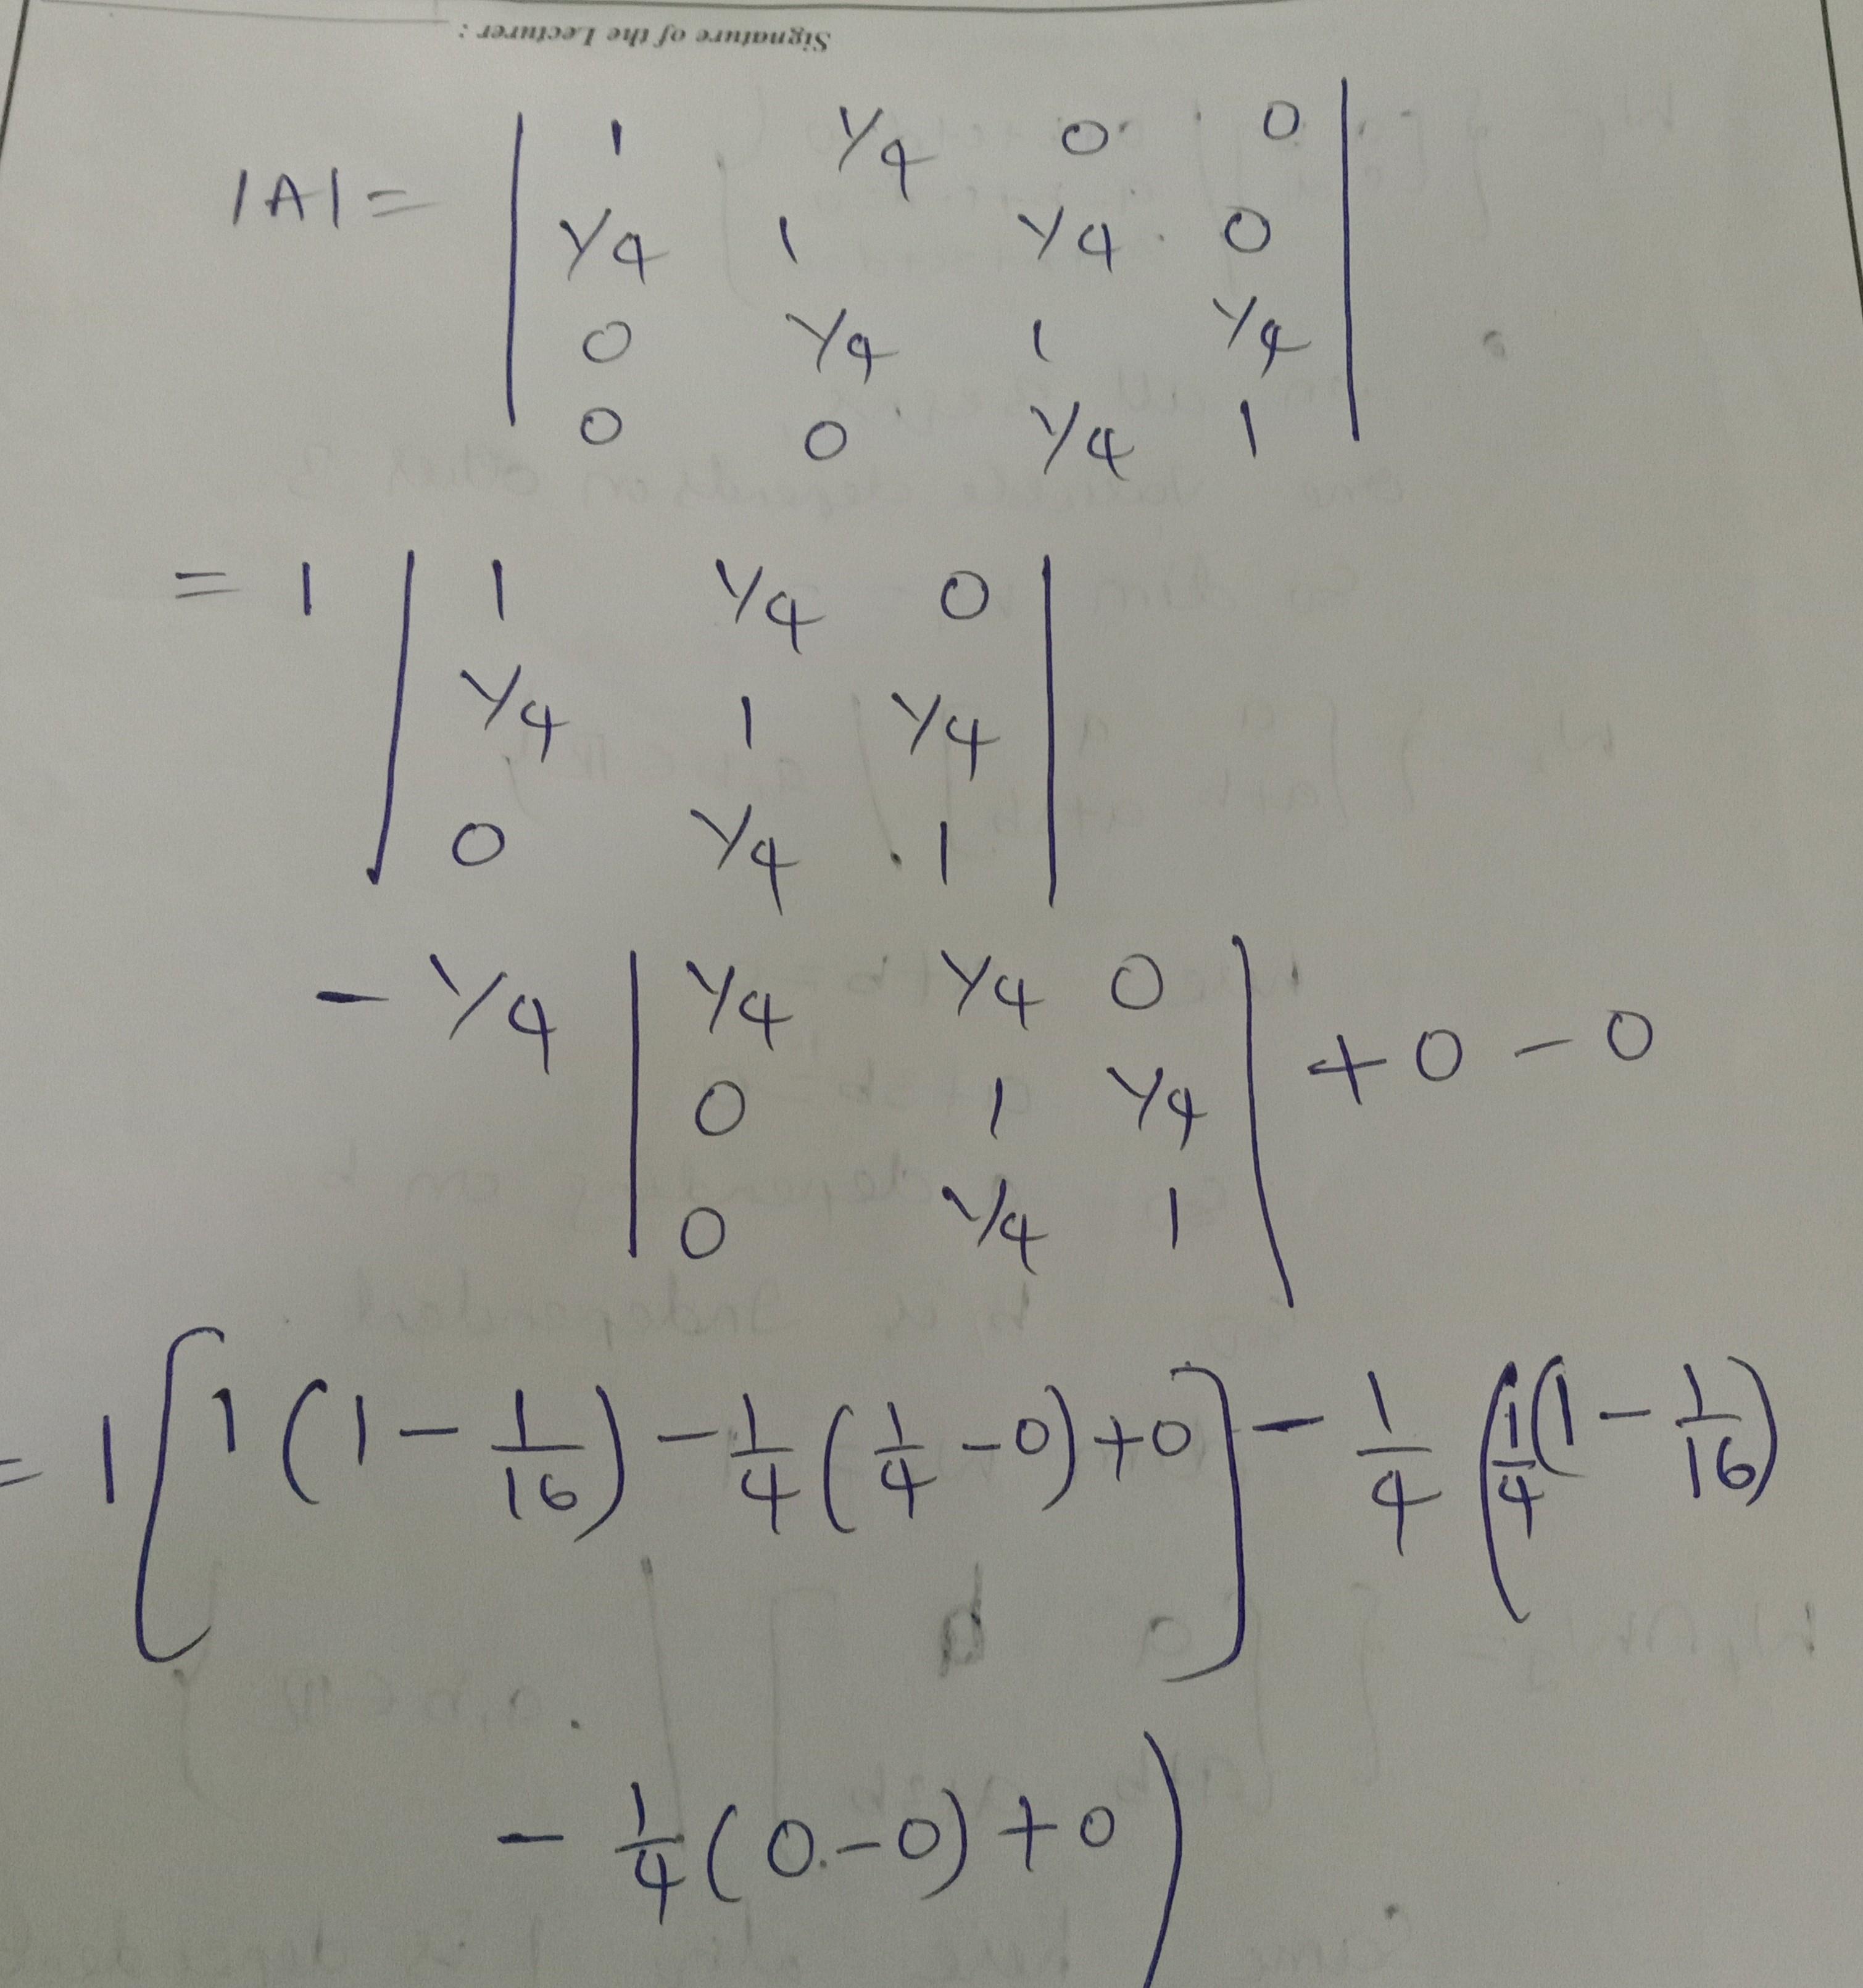 Signature of the Lecturer :
|A| = | 1 1/4 0 0 |
| 1/4 1 1/4 0 |
| 0 1/4 1 1/4 |
| 0 0 1/4 1 |
= 1 | 1 1/4 0 |
| 1/4 1 1/4 |
| 0 1/4 1 |
- 1/4 | 1/4 1/4 0 | + 0 - 0
| 0 1 1/4 |
| 0 1/4 1 |
= 1 [ 1 ( 1 - 1/16 ) - 1/4 ( 1/4 - 0 ) + 0 ] - 1/4 ( 1/4 ( 1 - 1/16 )
- 1/4 ( 0 - 0 ) + 0 )